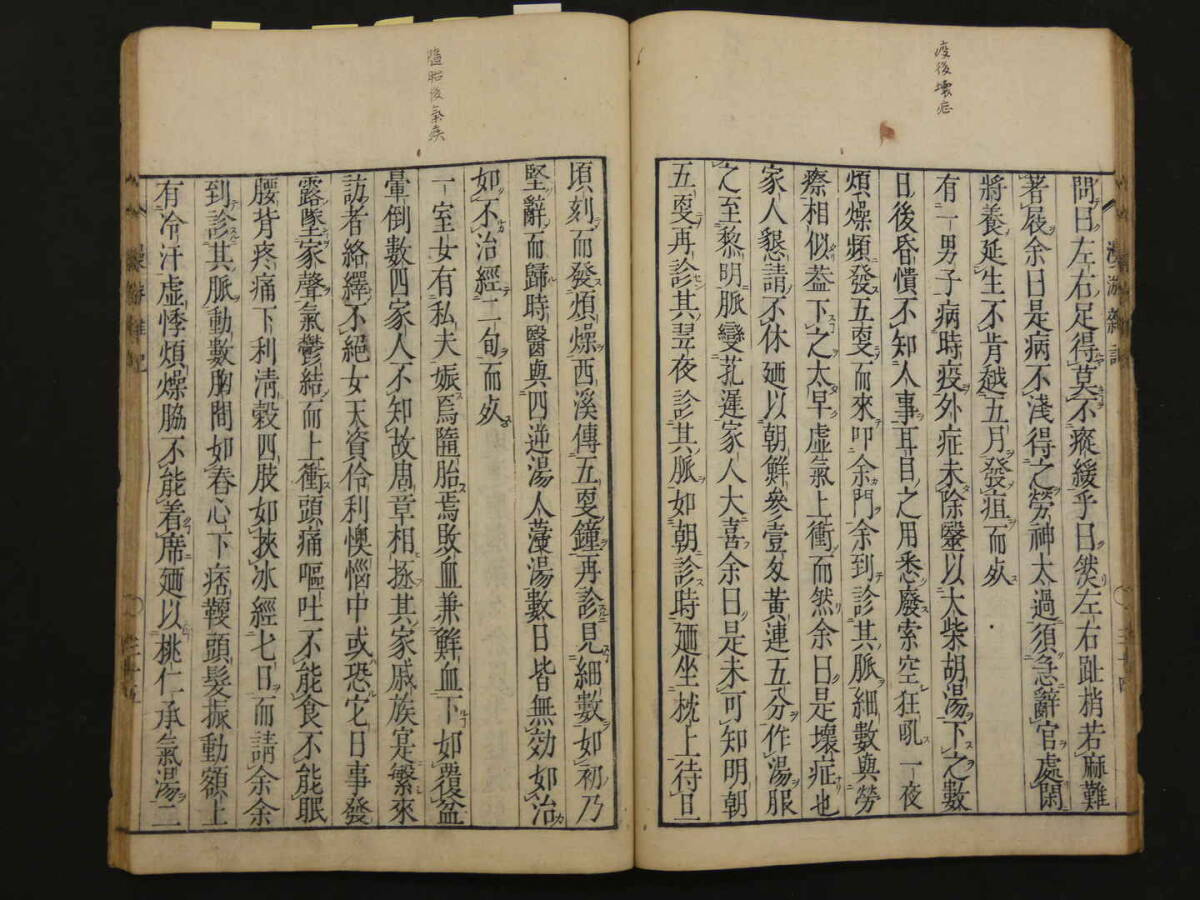 疫後壞症
問曰左右足得莫不痿緩乎曰然左右趾梢若麻難
著屐余曰是病不淺得之勞神太過須急辭官處閑
將養延生不肯越五月發疽而死
有一男子病時疫外症未除醫以大柴胡湯下之數
日後昏憒不知人事耳目之用悉廢索空狂吼一夜
煩燥頻發五更而來叩余門余到診其脈細數與勞
瘵相似蓋下之太早虛氣上衝而然余曰是壞症也
家人懇請不休廼以朝鮮參壹匁黃連五分作湯服
之至黎明脈變芤遲家人大喜余曰是未可知明朝
五更再診其翌夜診其脈如朝診時廼坐枕上待旦
墮胎後氣疾
頃刻而發煩燥西溪傳五更鐘再診見細數如初乃
堅辭而歸時醫與四逆湯人薓湯數日皆無効如治
如不治經二旬而死
一室女有私夫娠焉墮胎焉敗血兼鮮血下如覆盆
暈倒數四家人不知故周章相拯其家戚族寔繁來
訪者絡繹不絕女天資伶利懊惱中或恐它日事發
露墜家聲氣鬱結而上衝頭痛嘔吐不能食不能眠
腰背疼痛下利清穀四肢如挾冰經七日而請余余
到診其脈動數胸間如舂心下痞鞕頭髮振動額上
有冷汗虛悸煩燥脇不能着席廼以桃仁承氣湯二